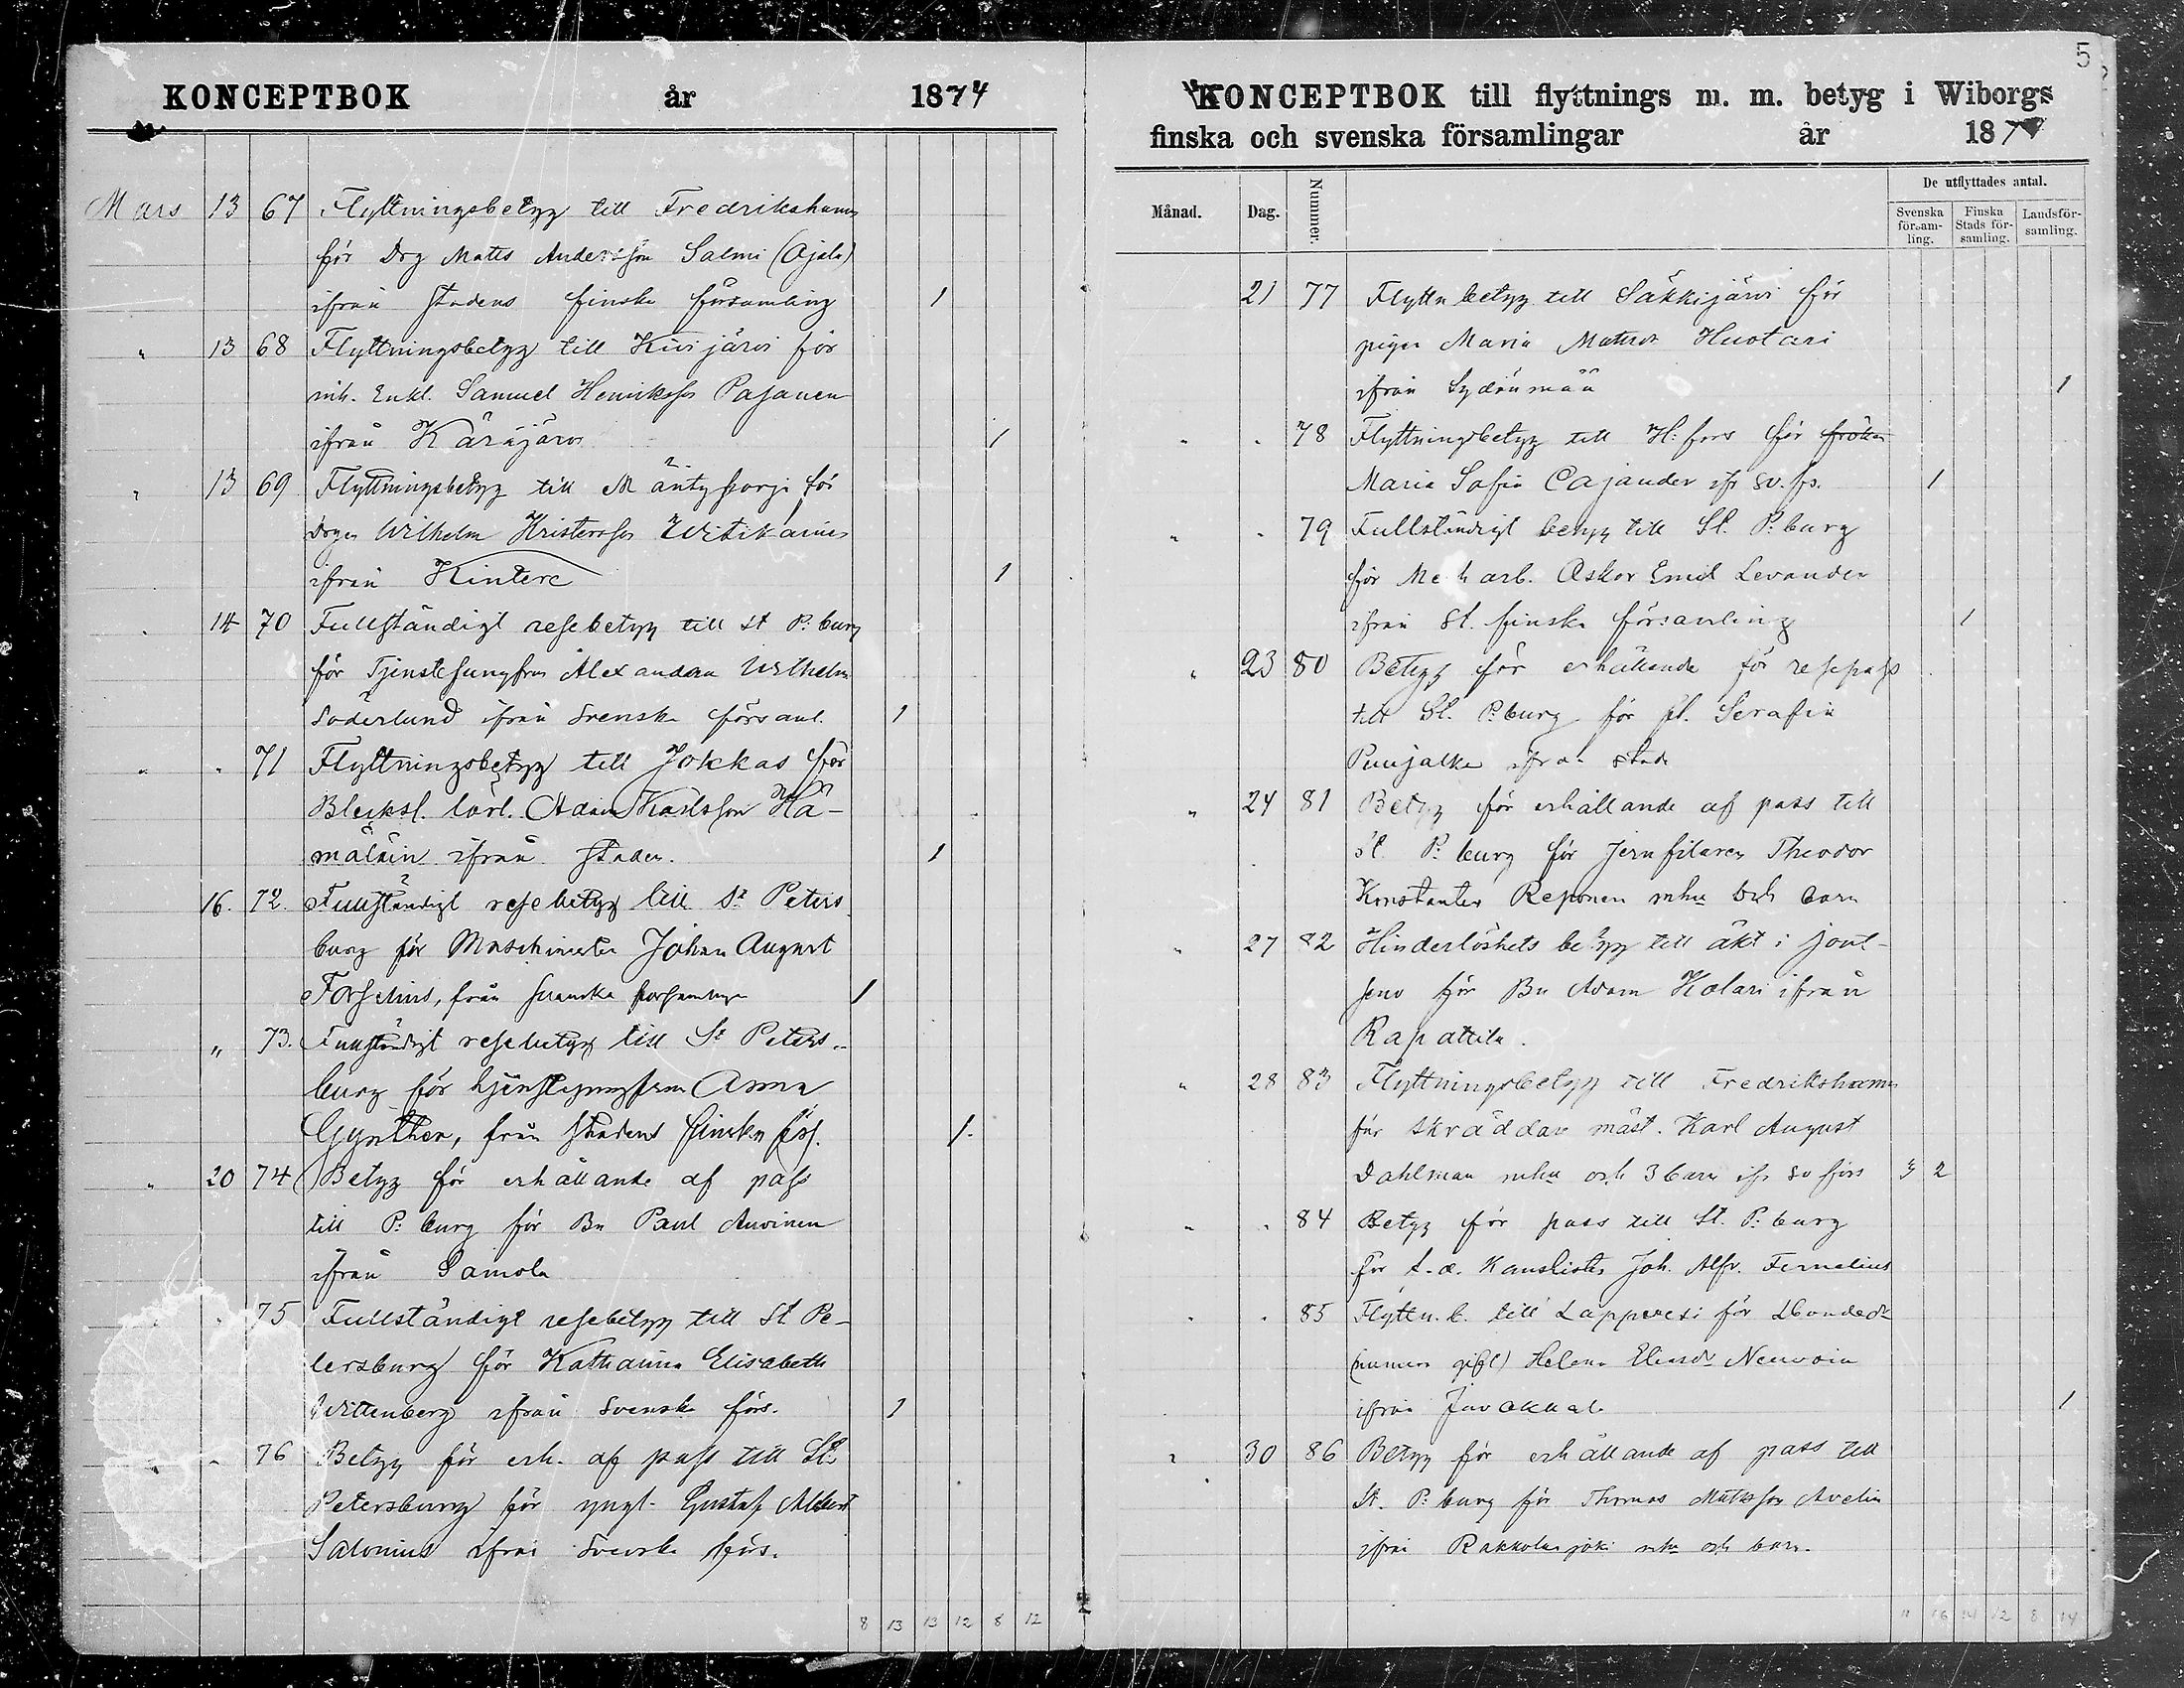 KONCEPTBOK år 1874
Mars 13 67 Flyttningsbetyg till Fredrikshamn
för Drg Matts Andersson Salmi (Ajala)
ifrån stadens finska församling 1
" 13 68 Flyttningsbetyg till Kivijärvi för
inh. Enkl. Samuel Henriksson Pajanen
ifrån Käräjärvi 1
" 13 69 Flyttningsbetyg till Mäntyharju för
Drgn Wilhelm Kristersson Witikainen
ifrån Kintere 1
" 14 70 Fullständigt resebetyg till St P:burg
för Tjenstejungfrun Alexandra Wilhelm
Söderlund ifrån Svenska församl. 1
" " 71 Flyttningsbetyg till Jokkas för
Blecksl. lärl. Adam Karlsson Hä-
mäläin ifrån staden. 1
16. 72. Fullständigt resebetyg till St Peters
burg för Maschinisten Johan August
Forselius, från Svenska församlingen 1
" 73. Fullständigt resebetyg till St Peters-
burg för tjenstejungfrun Anna
Gynther, från stadens finska förs. 1.
" 20 74 Betyg för erhållande af pass
till P:burg för Bn Paul Auvinen
ifrån Samola
" 75 Fullständigt resebetyg till St Pe-
tersburg för Katharina Elisabeth
Wittenberg ifrån Svenska förs. 1
" 76 Betyg för erh. af pass till St
Petersburg för yngl. Gustaf Albert
Salonius ifrån Svenska förs.
8 13 13 12 8 12
5
KONCEPTBOK till flyttnings m. m. betyg i Wiborgs
finska och svenska församlingar år 1874
Månad. Dag. Nummer. De utflyttades antal.
Svenska församling. Finska Stads församling. Landsförsamling.
21 77 Flyttn betyg till Säkkijärvi för
pigan Maria Mattsdr Huotari
ifrån Sydänmaa 1
" " 78 Flyttningsbetyg till H:fors för fröken
Maria Sofia Cajander ifr sv. fs. 1
" " 79 Fullständigt betyg till St. P:burg
för Mek arb. Oskar Emil Levander
ifrån St. finska församling 1
" 23 80 Betyg för erhållande för respass
till St. P:burg för fl. Serafin
Puujalka ifrån stad
" 24 81 Betyg för erhållande af pass till
St. P:burg för Jernfilaren Theodor
Konstantin Reponen mhu och barn
" 27 82 Hinderlöshets betyg till äkt i Jout-
seno för Bn Adam Kolari ifrån
Rapattila.
" 28 83 Flyttningsbetyg till Fredrikshamn
för skräddar mäst. Karl August
Dahlman mhu och 3 barn ifr sv förs 3 2
" " 84 Betyg för pass till St. P:burg
för t. d. Kanslisten Joh. Alfr. Fernelius
" " 85 Flyttn. b. till Lappvesi för Bondedr
(numera gift) Helena Eliasdr Neuvoin
ifrån Juvakkal 1
" 30 86 Betyg för erhållande af pass till
St. P:burg för Thomas Mattsson Avelin
ifrån Rakkolanjoki mhu och barn.
11 16 14 12 8 14